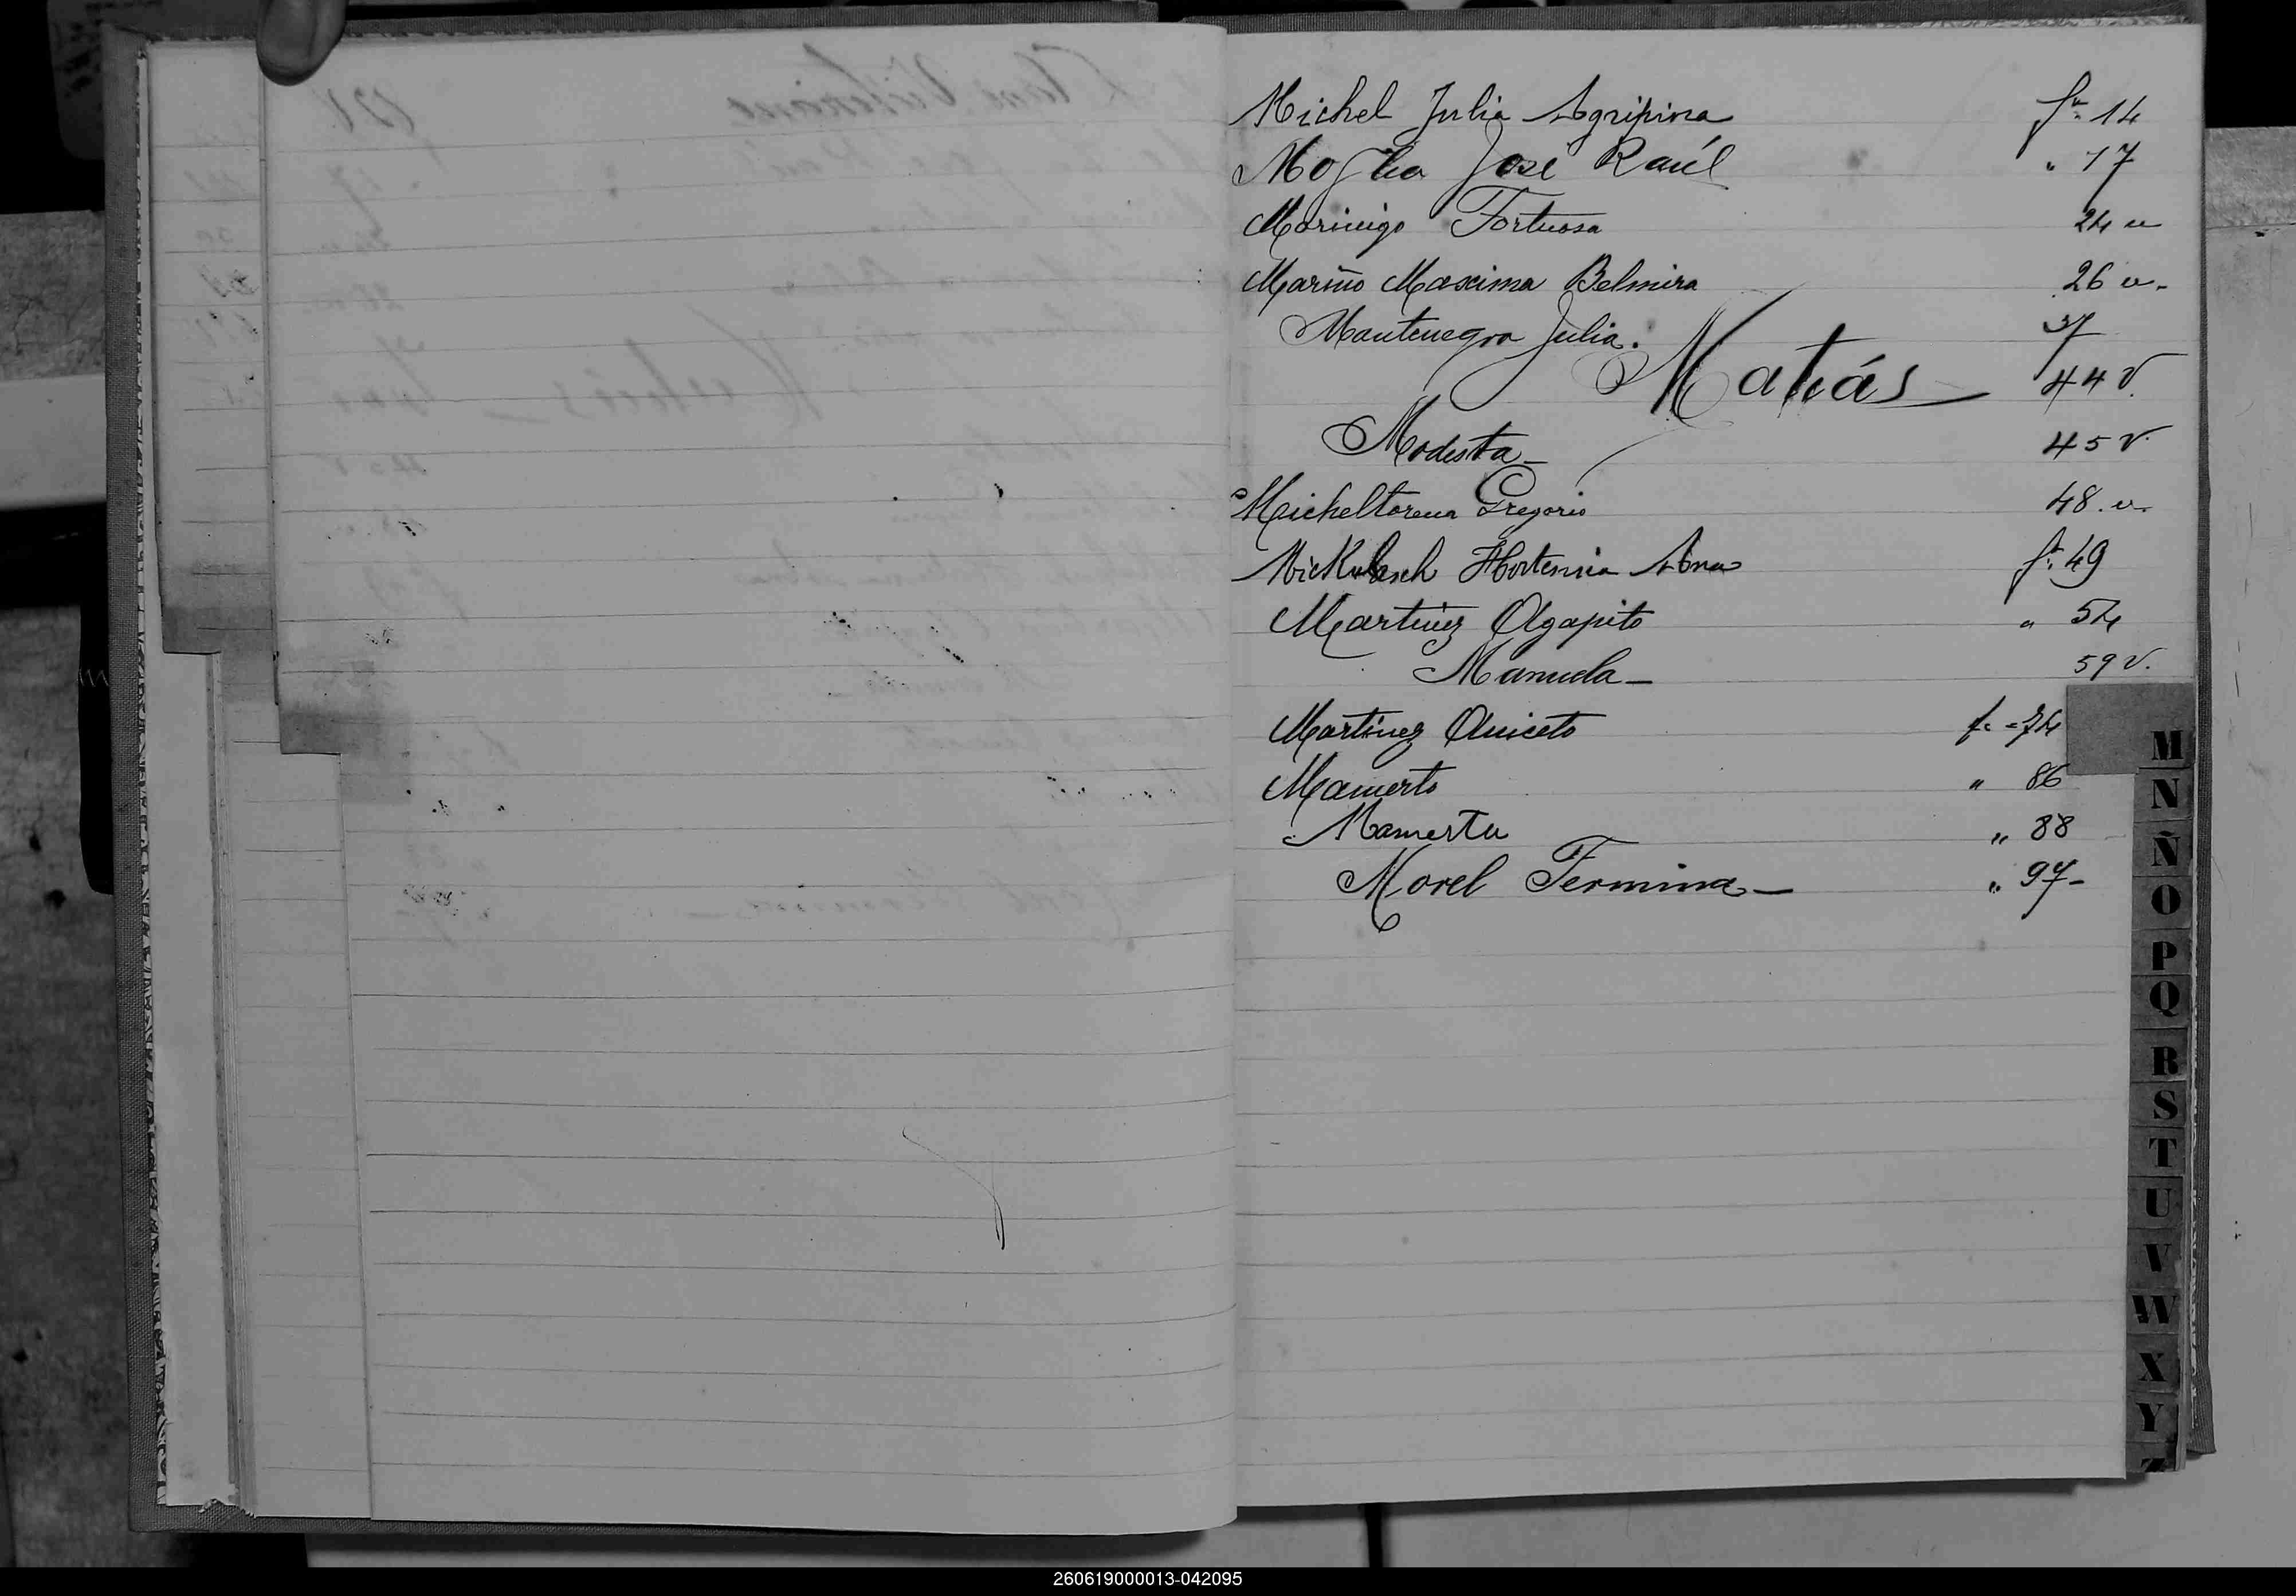 Michel Julia Agripina fº 14
Moglia José Raúl " 17
Morinigo Fortuosa 24 v
Mariño Maxima Belmira 26 v.
Montenegro Julia. 37
Matías 44 v.
Modesta 45 v.
Micheltorena Gregorio 48. v.
Hortensia Ana fº 49
Martinez Agapito " 54
Manuela 59 v.
Martinez Aniceto f. 74
Mamerto " 86
Mamerta " 88
Morel Fermina " 97
M
N
Ñ
O
P
Q
R
S
T
U
V
W
X
Y
Z
260619000013-042095